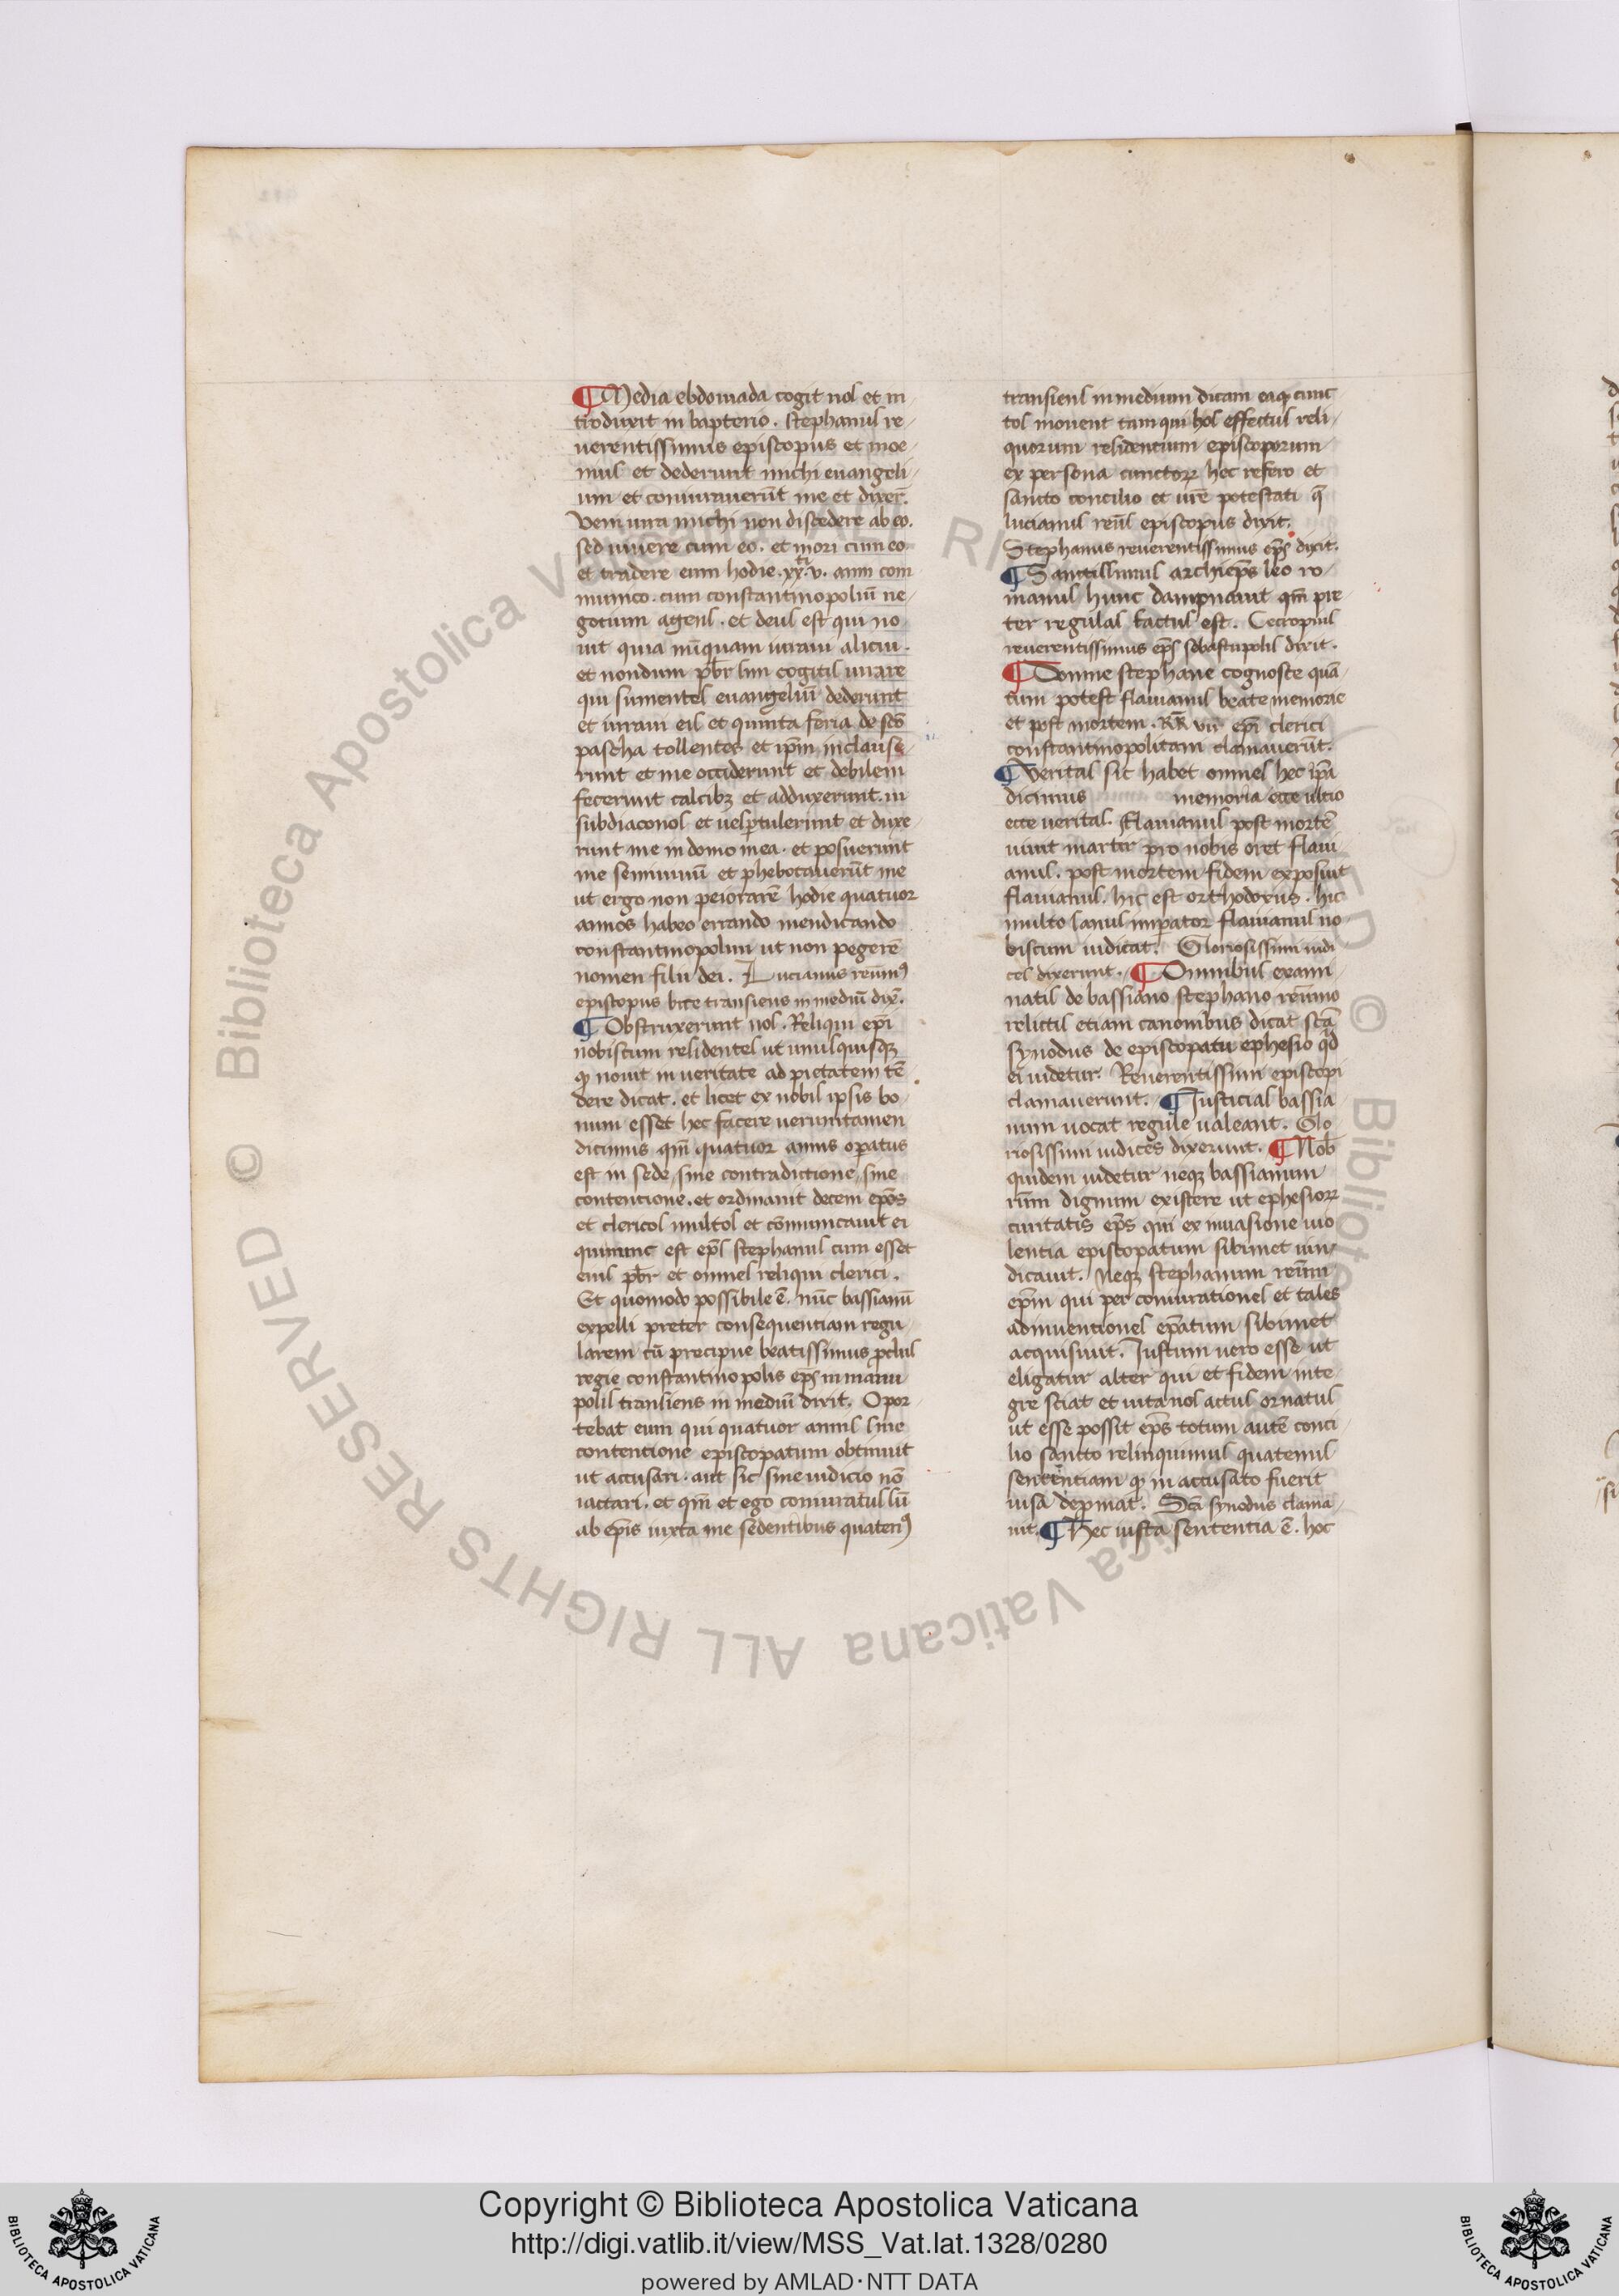 ¶ Media ebdomada cogit nos et in
troduxit in bapterio. Stephanus re
uerentissimus episcopus et moe
nius et dederunt michi euangeli
um et coniurauerūt me et dixer̄.
Veni iura michi non discedere ab eo.
sed uiuere cum eo. et mori cum eo
et tradere eum hodie. xx.v. anni com
munico. cum constantinopoliū ne
gotium agens. et deus est qui no
uit quia nūquam iuraui alicui.
et nondum pb̄r sim cogitis iurare
qui sumentes euangeliū dederunt
et iuraui eis et quinta feria de sc̄o
pascha tollentes et ip̄m inclause
runt et me occiderunt et debilem
fecerunt calcibꝫ et adduxerunt. in
subdiaconos et uelꝑtulerunt et duxe
runt me in domo mea. et posuerunt
me semiuiuū et phebotauerūt me
ut ergo non peiorarē hodie quatuor
annos habeo errando mendicando
constantinopolim ut non pegerē
nomen filii dei. Lucianus reūim9
episcopus bice transiens in mediū dix̄.
¶ Obstruxerunt nos. Reliqui ep̄i
nobiscum residentes ut unusquisqꝫ
ꝙ nouit in ueritate ad pietatem tē
dere dicat. et licet ex nobis ipsis bo
num esset hec facere uerumtamen
dicimus qm̄ quatuor annis opatus
est in sede, sine contradictione, sine
contentione. et ordinauit decem ep̄os
et clericos multos et cōmunicauit ei
qui nunc est ep̄s stephanus cum esset
eius pb̄r et omnes reliqui clerici.
Et quomodo possibile ē. nūc bassianū
expelli preter consequentiam regu
larem cū precipue beatissimus ꝓclus
regie constantinopolis ep̄s in manu
polis transiens in mediū dixit. Opor
tebat eum qui quatuor annis sine
contentione episcopatum obtinuit
ut accusari. aut sic sine iudicio nō
iactari. et qm̄ et ego coniuratus sū
ab ep̄is iuxta me sedentibus quaten9
transiens in medium dicam eaqꝫ cunc
tos mouent tamqui hos effectus reli
quorum residentium episcoporum
ex persona cunctoꝝ hec refero et
sancto concilio et ur̄e potestati q̄
lucianus reūs episcopus dixit.
Stephanus reuerentissimus ep̄s dixit.
¶ Sanctissimus archiep̄s leo ro
manus hunc dampnauit qm̄ pre
ter regulas factus est. Cecropius
reuerentissimus ep̄s sebastupolis dixit.
¶ Domne stephane cognosce quā
tum potest flauianus beate memorie
et post mortem. RR̄ uir̄ ep̄i clerici
constantinopolitani clamauerūt.
¶ Veritas sic habet omnes hec ip̄a
dicimus memoria ecce ultio
ecce ueritas. Flauianus post mortē
uiuit martir pro nobis oret flaui
anus. post mortem fidem exposuit
flauianus. hic est orthodoxus. hic
multo sanus imperator flauianus no
biscum iudicat. Gloriosissimi iudi
ces dixerunt. ¶ Omnibus exami
natis de bassiano stephano reūimo
relictis etiam canonibus dicat scā
synodus de episcopatu ephesio qd̄
ei uidetur. Reuerentissimi episcopi
clamauerunt. ¶ Iusticias bassia
num uocat regule ualeant. Glo
riosissimi iudices dixerunt. ¶ Nob̄
quidem uidetur neqꝫ bassianum
rūm dignum existere ut ephesioꝝ
ciuitatis ep̄s qui ex inuasione uio
lentia episcopatum sibimet uin
dicauit. Neqꝫ stephanum reūim
ep̄m qui per coniurationes et tales
adinuentiones ep̄atum sibimet
acquisiuit. Iustum uero esse ut
eligatur alter qui et fidem inte
gre sciat et uita nos actus ornatus
ut esse possit ep̄s totum autē conci
lio sancto relinquimus quatenus
sententiam ꝙ in accusato fuerit
uisa depmat. Scā synodus clama
uit. ¶ Hec iusta sententia ē. hoc
Copyright © Biblioteca Apostolica Vaticana
http://digi.vatlib.it/view/MSS_Vat.lat.1328/0280
powered by AMLAD·NTT DATA
BIBLIOTECA APOSTOLICA VATICANA
BIBLIOTECA APOSTOLICA VATICANA
© Biblioteca Apostolica Vaticana ALL RIGHTS RESERVED